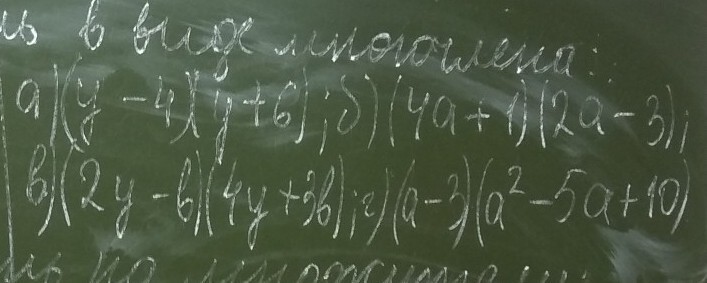 ь в виде многочлена:
а) (y - 4)(y + 6); б) (4a + 1)(2a - 3);
в) (2y - b)(4y + 3b); г) (a - 3)(a² - 5a + 10)
ь на множители